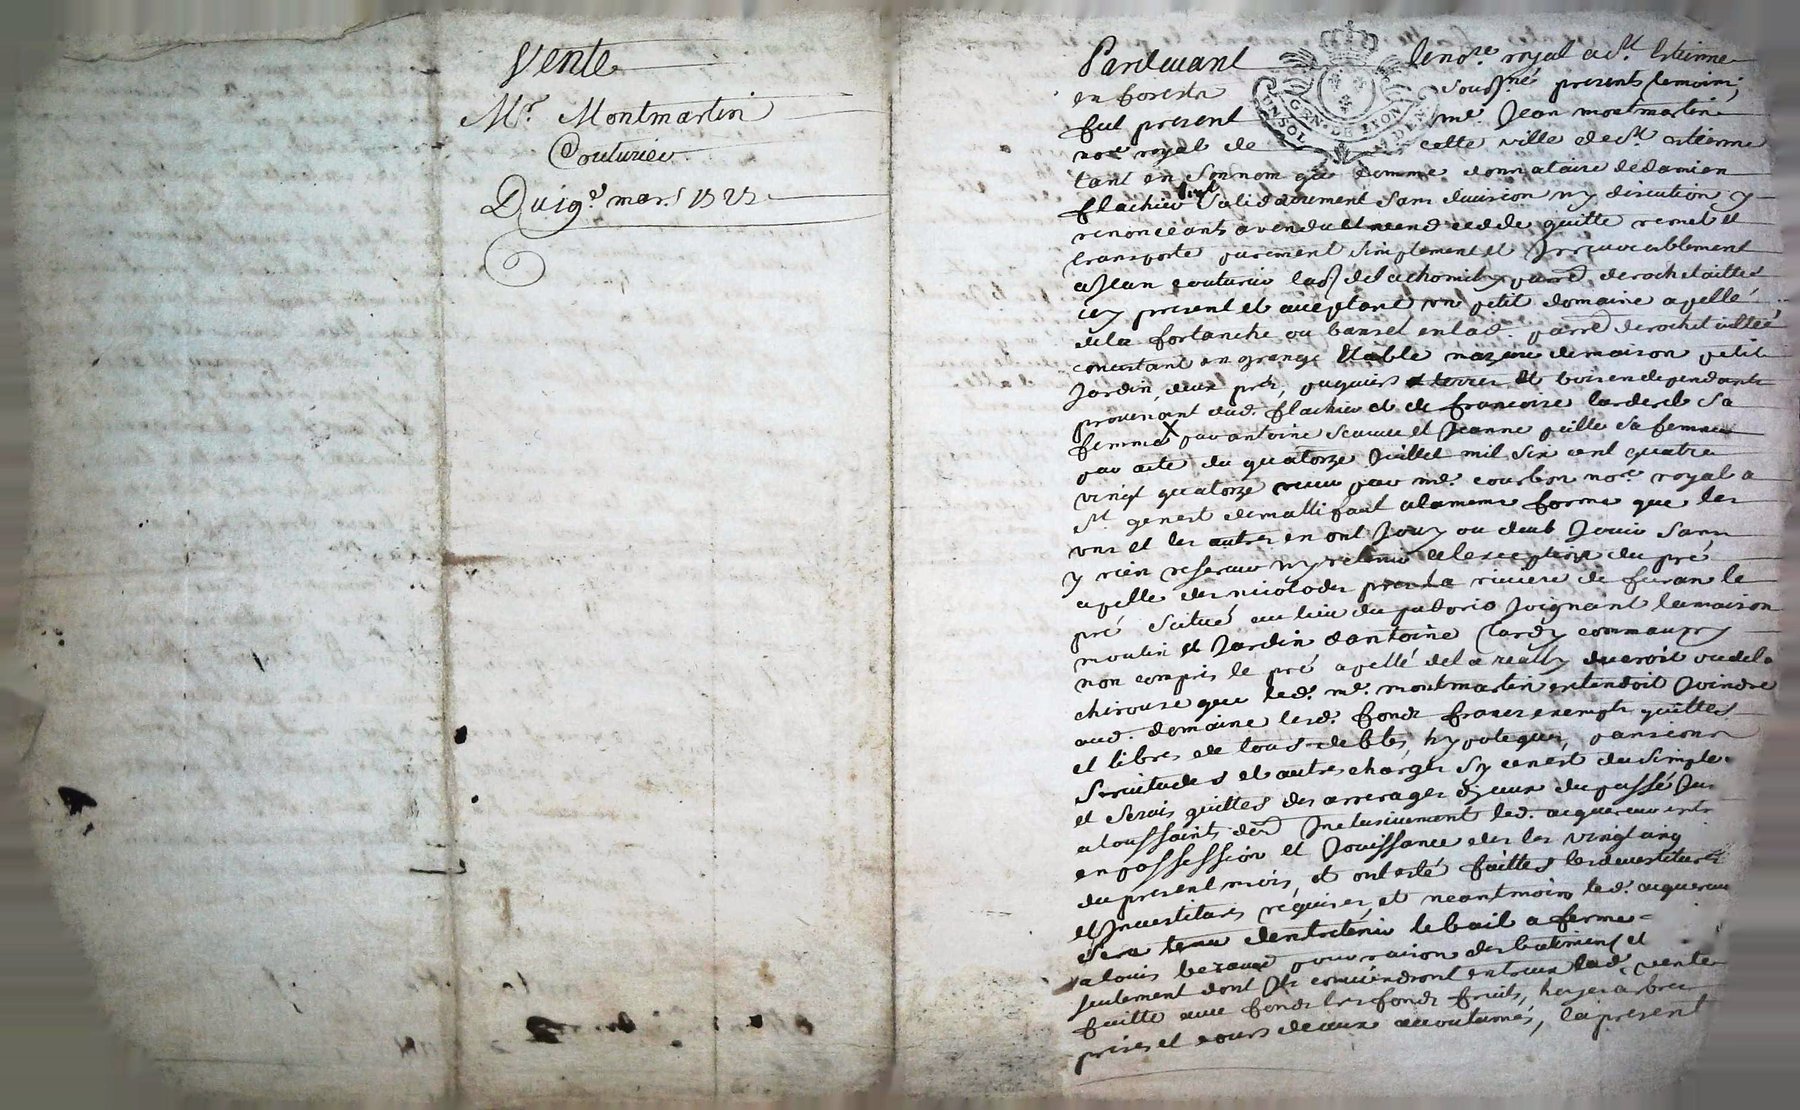 Vente
Mr. Montmartin
Couturier
Du 19e mars
Pardevant le nore. royal a St. Estienne
en forestz sousne. presents temoins
fut present me. Jean montmartin
nore royal de cette ville de St. estienne
tant en son nom que comme donnataire de damien
flachier solidairement sans division ny discution y
renonceants a vendu et vend cedde quitte remet et
transporte purement simplement et Irrevocablement
a Jean couturier de rochetaillée
icy present et aceptant un petit domaine apellé
de la fortanche ou banset en lad. parre de rochetaillée
consistant en grange Etable mazure de maison petit
Jardin, deux prez, paquiers et terres et bois en dependants
provenant dud. flachier et de francoise larderet sa
femme X par antoine et Jeanne sa femme
par acte du quatorze Juillet mil six cent quatre
vingt quatorze receu par me. courbon nore. royal a
St genest de mallifaut a la meme forme que les
uns et les autres en ont Jouy ou deub Jouir sans
y rien reserver ny retenir a lexception du pré
apellé des riviere de furan le
pré scitué au lieu du Joignant la maison
moulin et Jardin dantoine Tardy
non compris le pré apellé de la ou de la
chirouze que led. me. montmartin entendoit Joindre
aud. domaine lesd. fonds francs exempts quittes
et libres de tous debtes, hypoteques, pansions
servitudes et autres charges sy ce nest du simple
et servis quittes des arrerages diceux du passé Jus
a toussaints der Inclusivement led. aquereur entr
en possession et Jouissance des le vingt cinq
du present mois, et ont esté faittes les devestitures
et Investitures requises, et neantmoins led. aquereur
sera tenu dentretenir le bail a ferme
a louis pour raison des batiments et
seulement dont Ils conviendront entreux lad. vente
faitte avec fonds tres fonds fruits, hayes arbres
prises et cours deaux accoutumés, la present